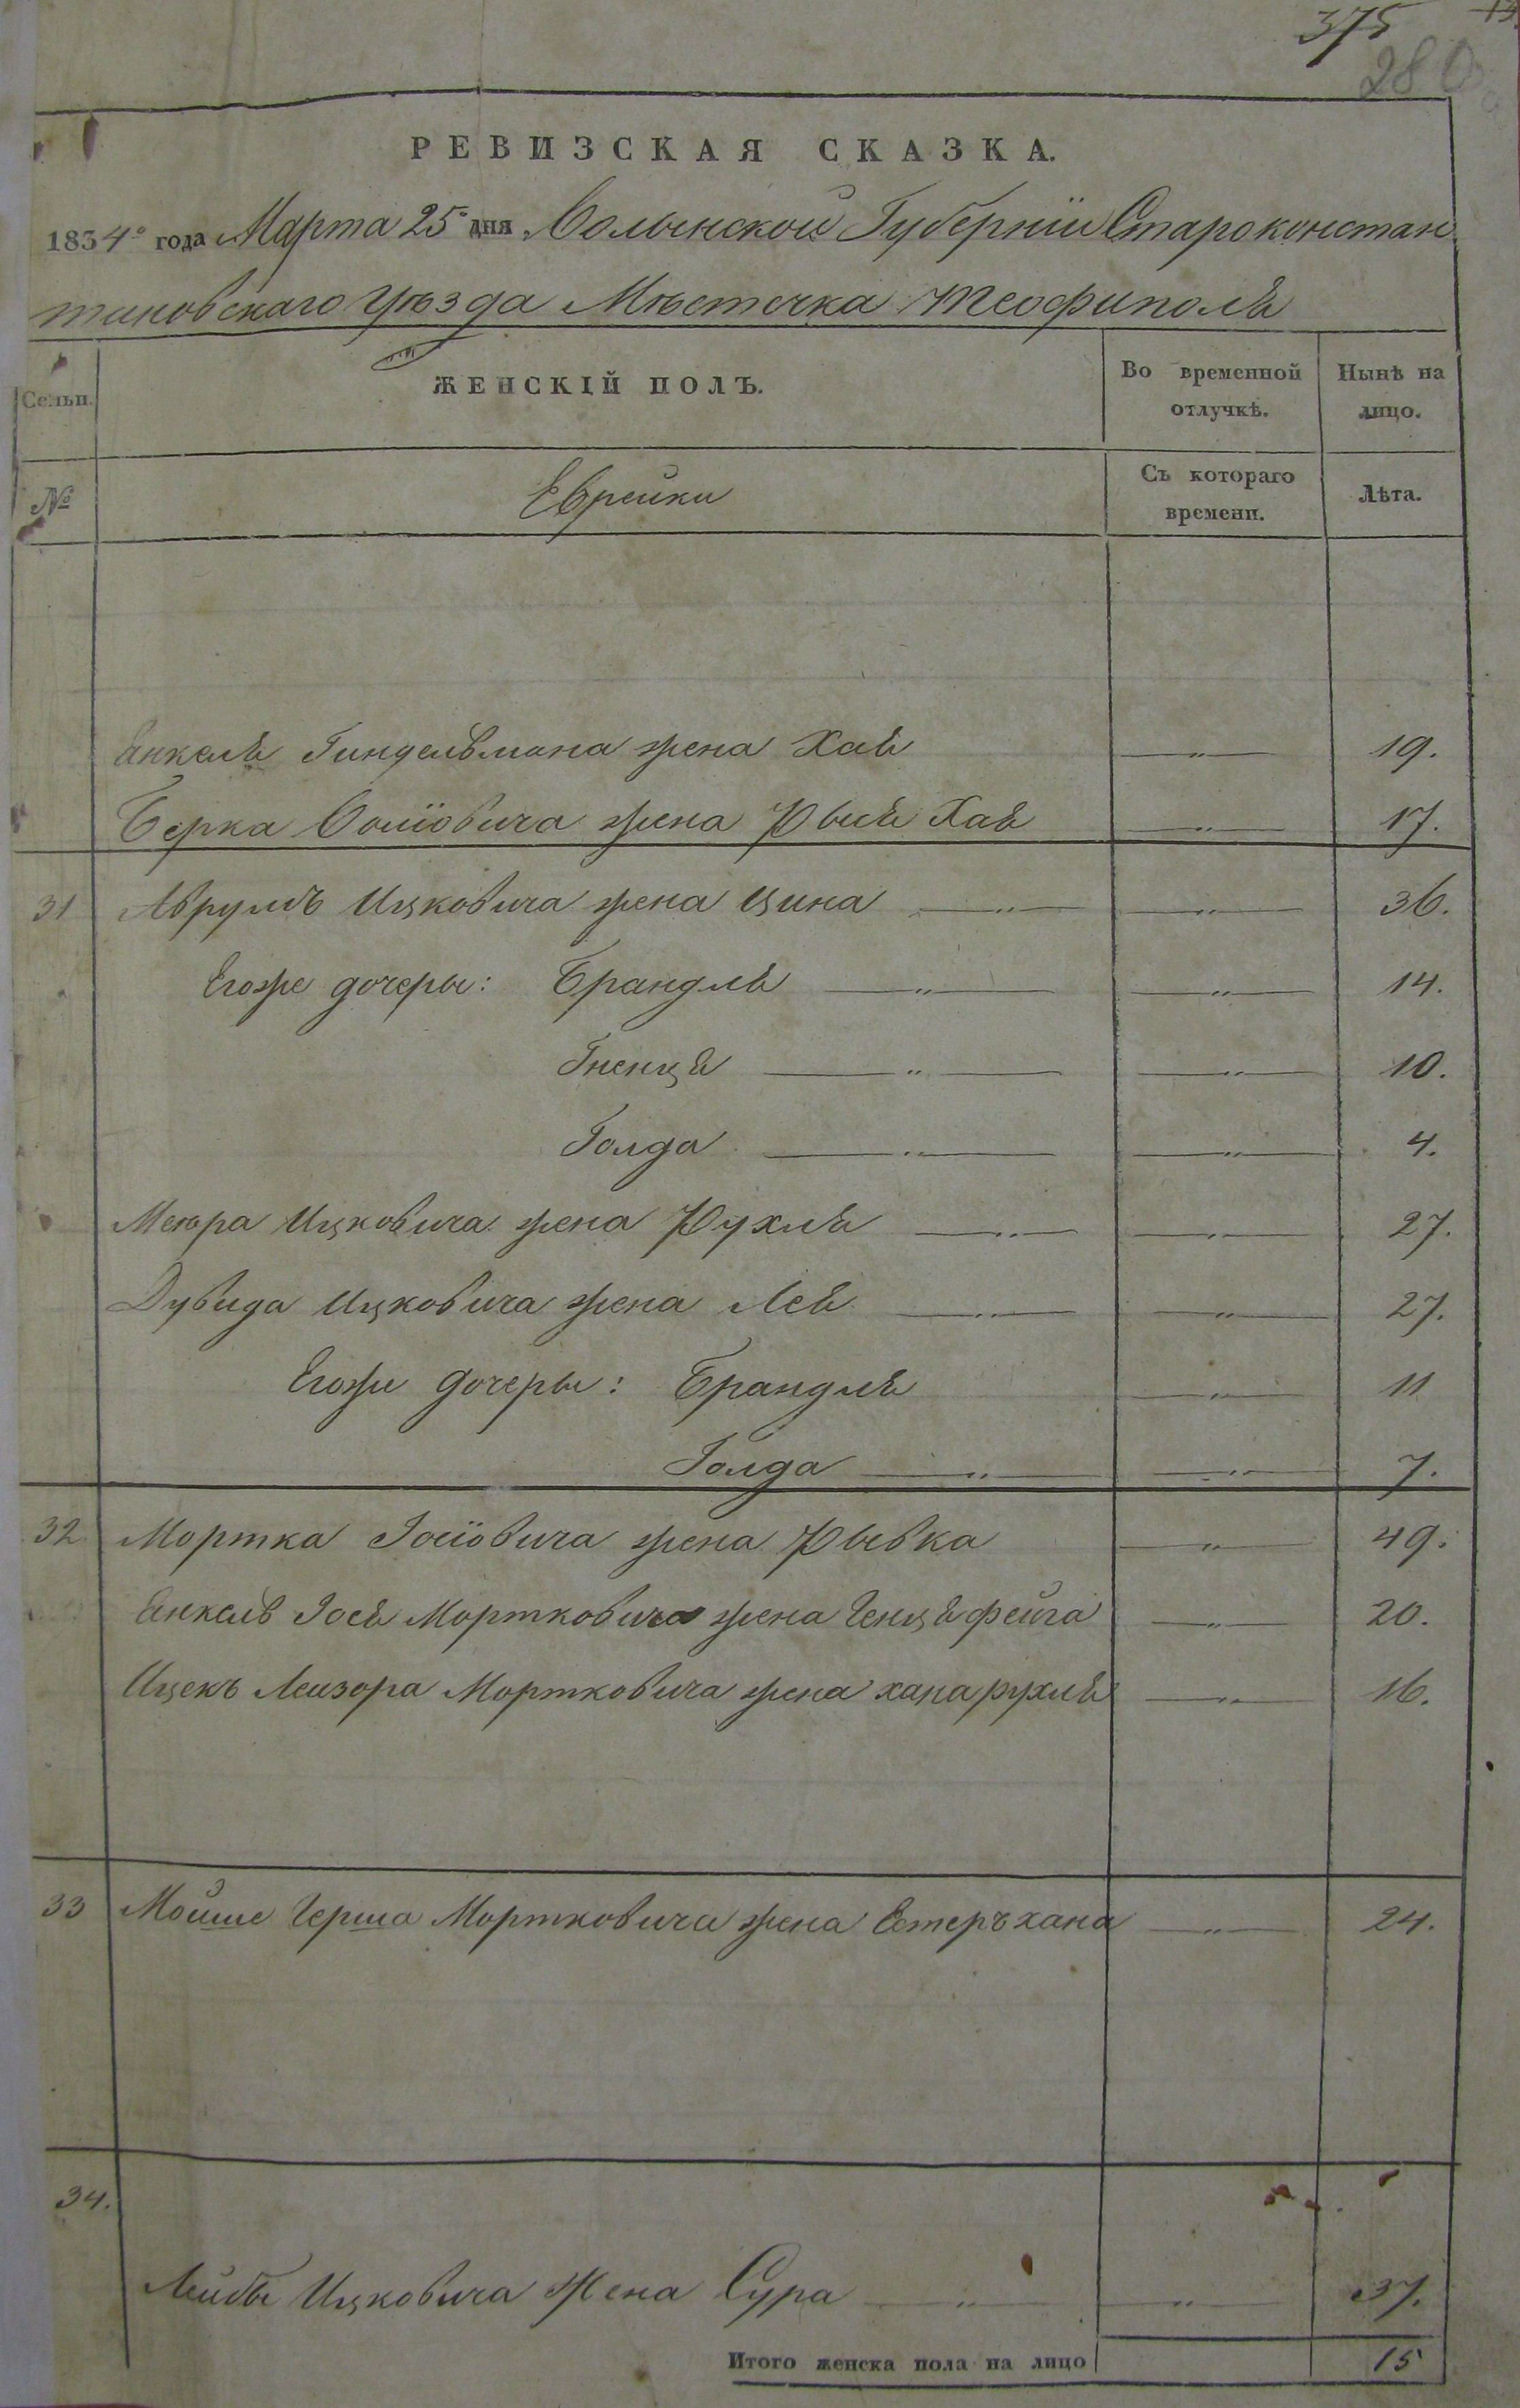 375
280
РЕВИЗСКАЯ СКАЗКА.
1834го года Марта 25 дня Волынской Губернїи Староконстан
тиновскаго Уѣзда Мѣстечка Теофиполя
Семьи. ЖЕНСКІЙ ПОЛЪ. Во временной отлучкѣ. Нынѣ на лицо.
№ Еврейки Съ котораго времени. Лѣта.
Янкеля Гиндельмана жена Хая — „ — 19.
Берка жена Хая — „ — 17.
31 Аврумъ Ицковича жена Цина — „ — — „ — 36.
Егоже дочеры: Брандля — „ — — „ — 14.
Гненця — „ — — „ — 10.
Голда — „ — — „ — 4.
Меюра Ицковича жена Рухля — „ — — „ — 27.
Дувида Ицковича жена Лея — „ — — „ — 27.
Егоже дочеры: Брандля — „ — 11
Голда — „ — — „ — 7.
32 Мортка Іосїовича жена Рывка — „ — 49.
Янкель Іося Мортковича жена Генця фейга — „ — 20.
Ицекъ Леизора Мортковича жена хана рухля — „ — 16.
33 Мойше Герша Мортковича жена Естеръ хана — „ — 24.
34.
Лейбы Ицковича Жена Сура — „ — — „ — 37.
Итого женска пола на лицо 15